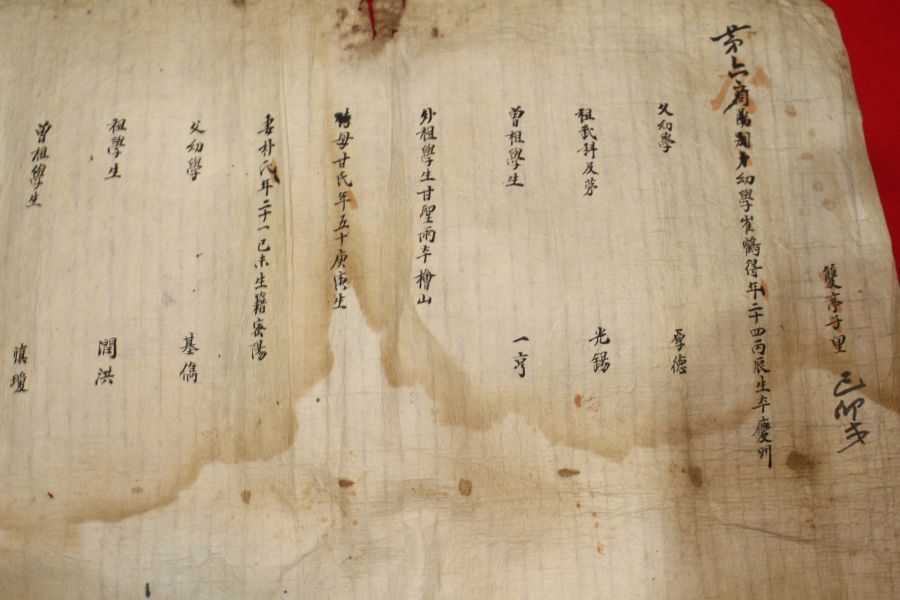 雙亭子里 己卯式
第六 幼學崔鶴得年二十四丙辰生本慶州
父幼學 厚德
祖武科及第 光錫
曾祖學生 一亨
外祖學生甘聖雨本檜山
母甘氏年五十庚寅生
妻朴氏年二十一己未生籍密陽
父幼學 基儁
祖學生 潤洪
曾祖學生 瓊